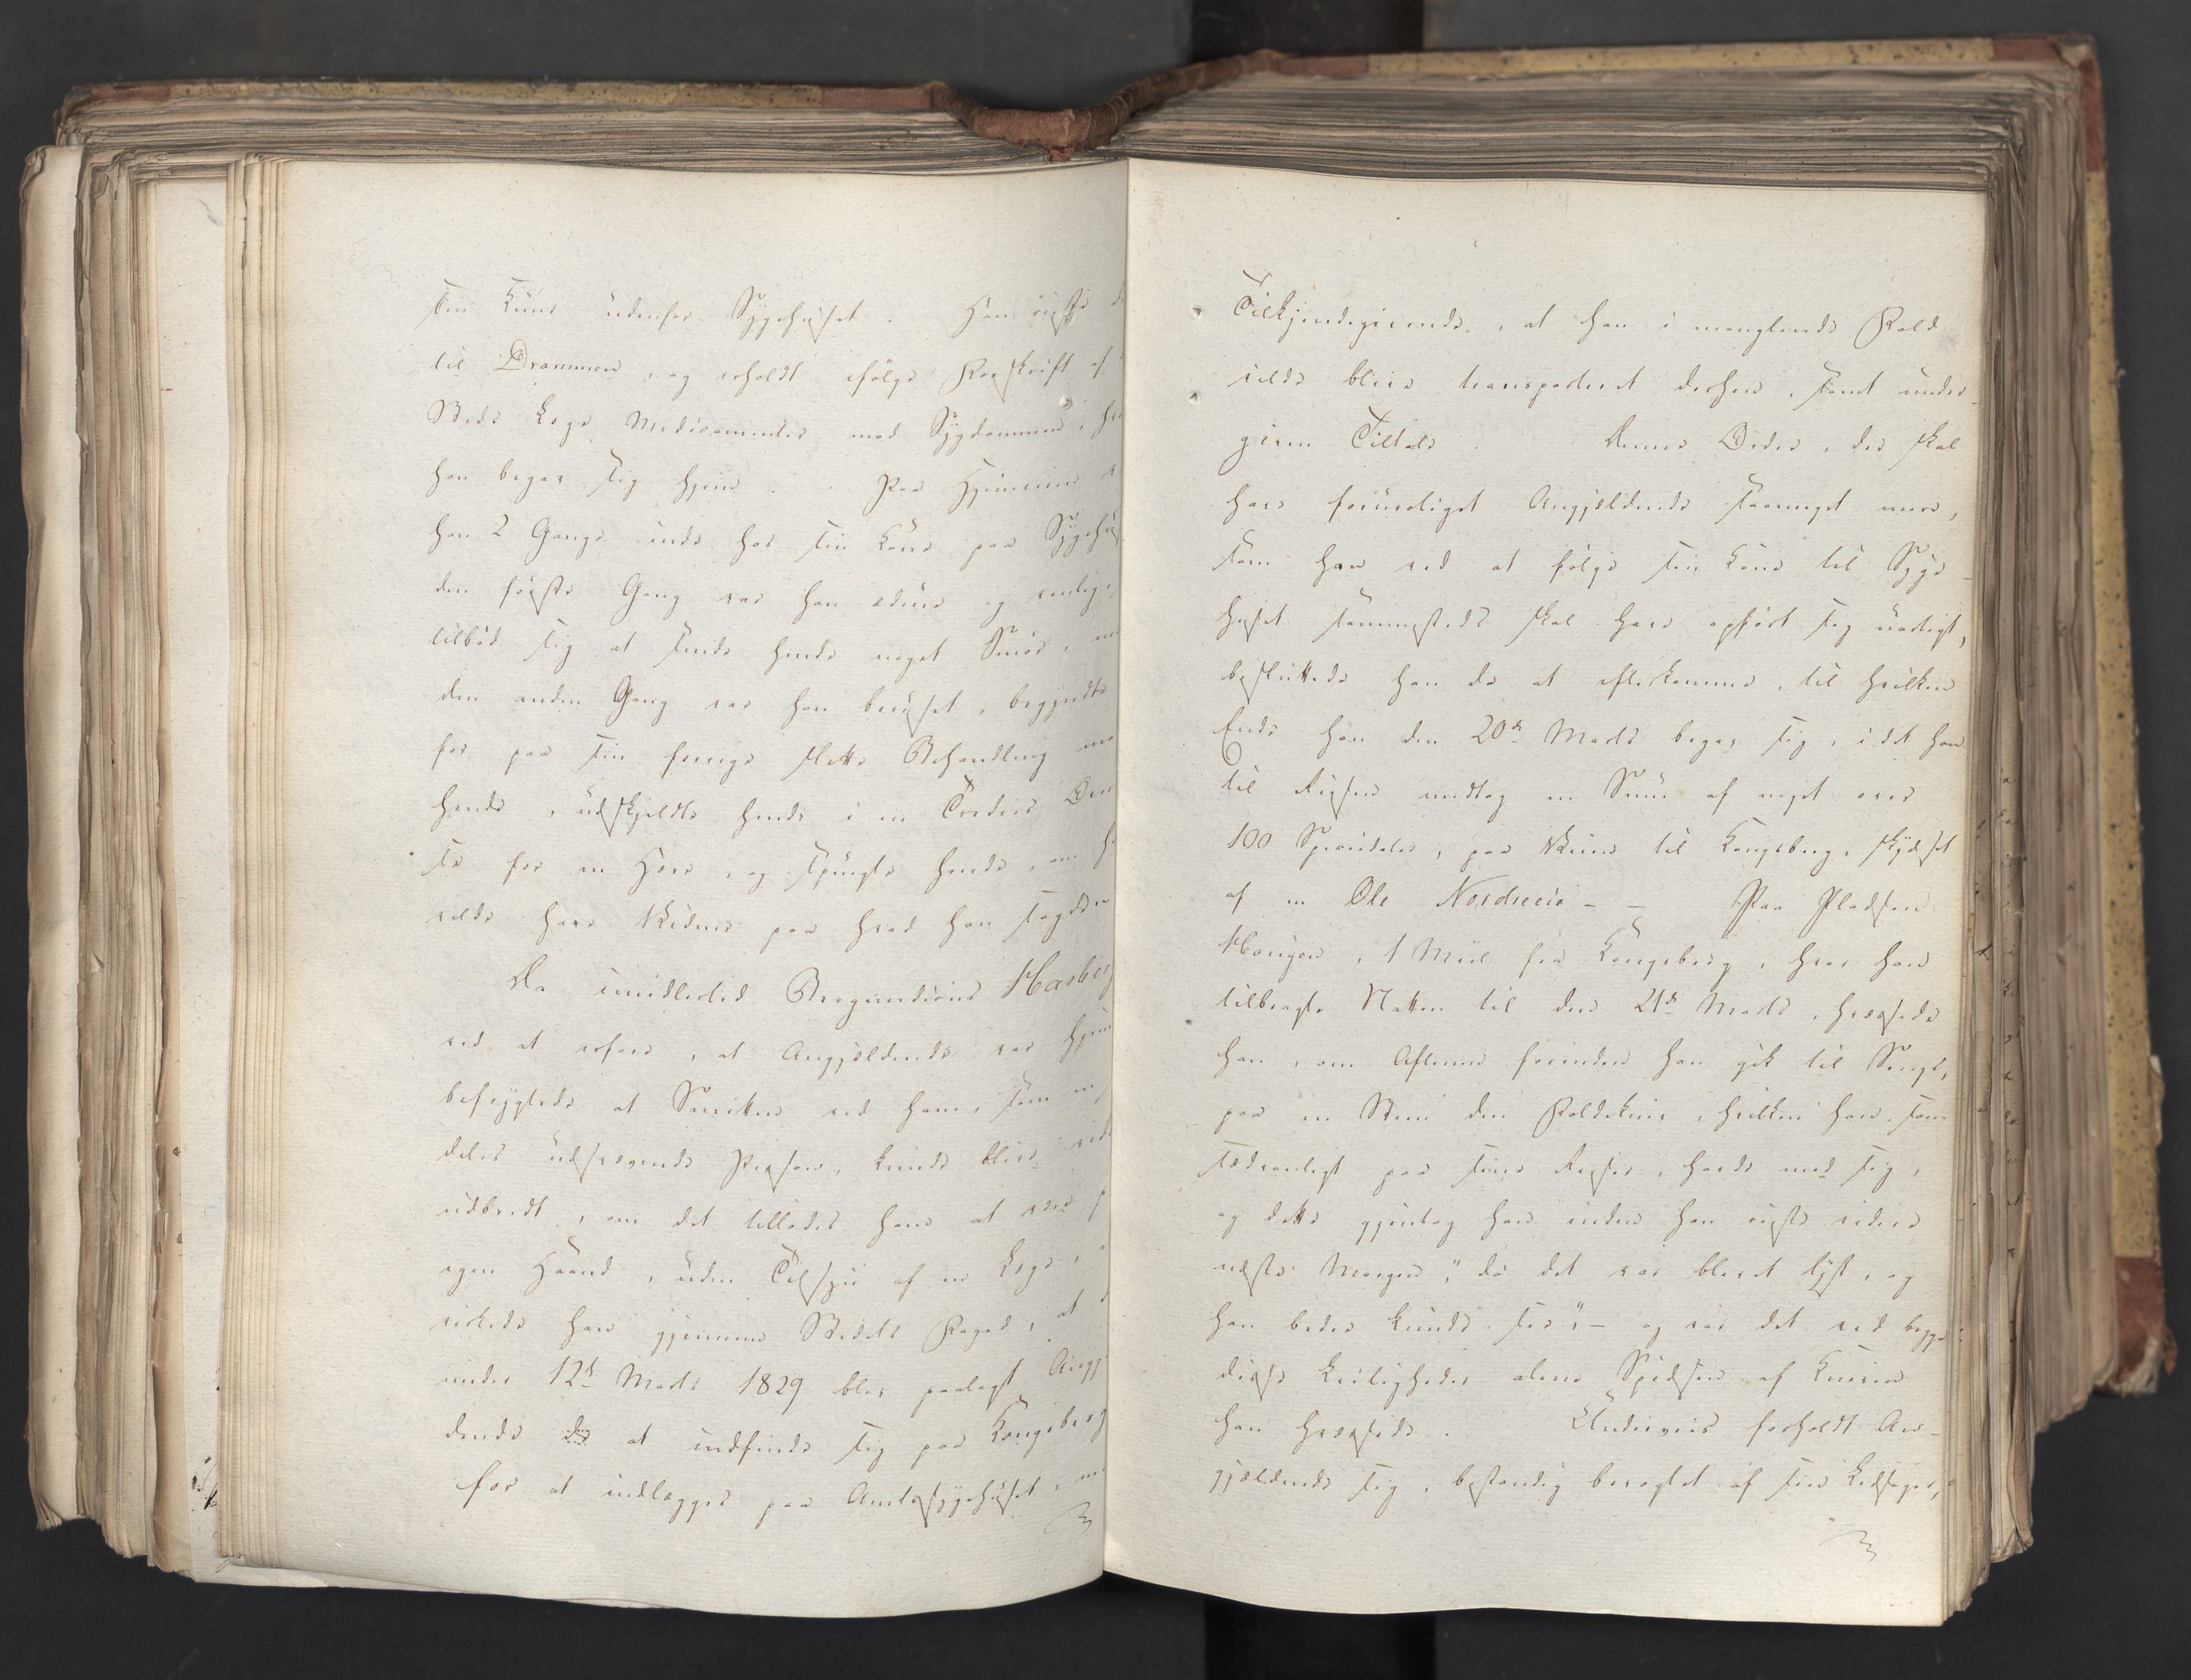 sin Kone udenfor Sygehuset. Han reiste
til Drammen, og erholdt ifølge Forskrift af
Steds Læge Medicamenter mod Sygdommen,
han begav sig hjem. Paa Hjemveien
han 2 Gange inde hos sin Kone paa Sygehus
den første Gang var han ædrue og venlig,
tilbød sig at sende hende noget Smør,
den anden Gang var han beruset, begyndte
for paa sin forrige slette Behandling
hende, udskjeldte hende i en Tredies
se for en Hore, og spurgte hende, om
vilde have Vidner paa hvad han sagde
Da imidlertid Bergmedicus
ved at erfare, at Angjeldende var hjem
befrygtede at Smitten ved ham, som
deles udsvævende Person, kunde blive
udbredt, om det tillodes ham at være
egen Haand, uden Tilsyn af en Læge,
virkede han gjennem Stedets Foged, at
under 12te Marts 1829 blev paalagt Angj
dende at indfinde sig paa Kongsberg
for at indlægges paa Amtssygehuset,
Tilkjendegivende, at han i manglende Fald
vilde blive transporteret derhen, samt under-
given Tiltale. Denne Ordre, der skal
have foruroliget Angjeldende saameget mere,
som han ved at følge sin Kone til Syge-
huset sammesteds skal have opført sig uartigt,
besluttede han da at efterkomme, til hvilken
Ende han den 20de Marts begav sig, i det han
til Reisen medtog en Sum af noget over
100 Speciedaler, paa Veien til Kongsberg, skydset
af en Ole Nordreeie - - Paa Pladsen
Hougen, 1 Miil fra Kongsberg, hvor han
tilbragte Natten til den 21de Marts, hvæssede
han, om Aftenen forinden han gik til Sengs,
paa en Steen den Foldekniv, hvilken han, som
sædvanligt paa sine Reiser, havde med sig,
og dette gjentog han inden han reiste videre
næste Morgen, "da det var blevet lyst, og
han bedre kunde see", - og var det ved begge
disse Leiligheder alene Spidsen af Kniven
han hvæssede. Underveis forholdt An-
gjældende sig, bestandig bevogtet af sin Ledsager,